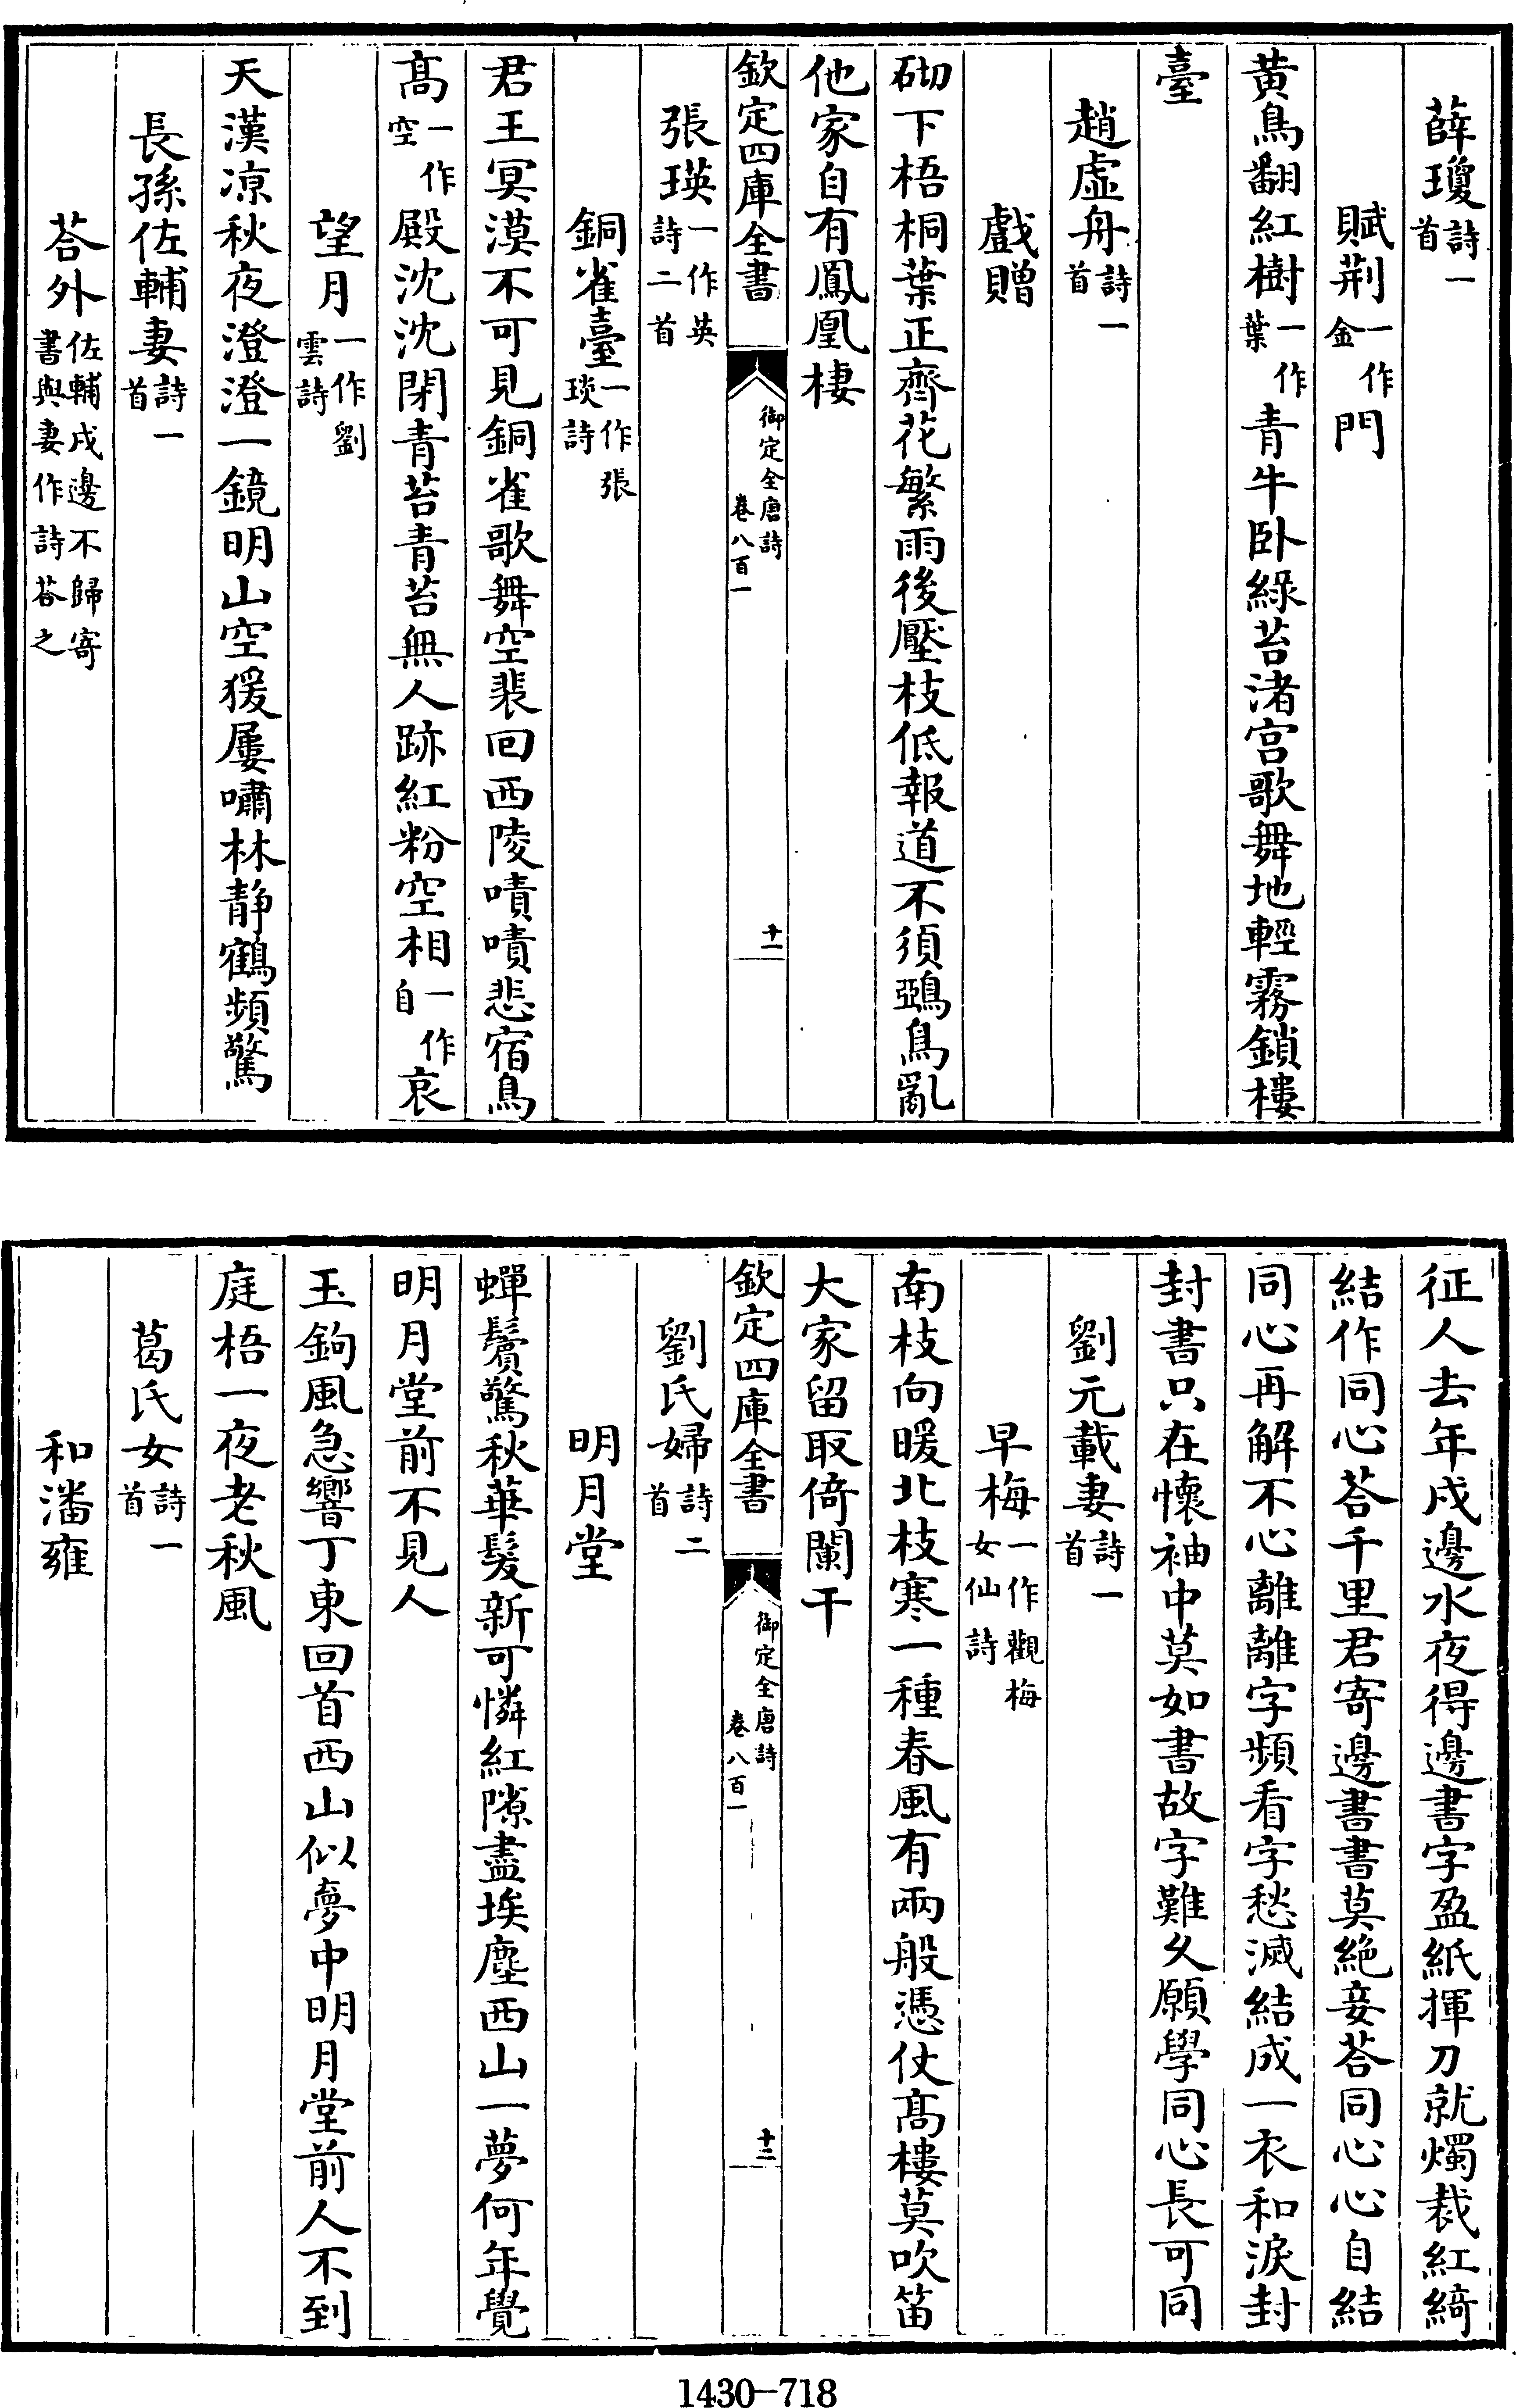 薛瓊詩一首
賦荆一作金門
黄鳥翻紅樹一作葉青牛卧綠苔渚宫歌舞地輕霧鎖樓
臺
趙虚舟詩一首
戲贈
砌下梧桐葉正齊花繁雨後壓枝低報道不須鵶鳥亂
他家自有鳳凰棲
欽定四庫全書
御定全唐詩卷八百一
十一
張瑛一作英詩二首
銅雀臺一作張琰詩
君王冥漠不可見銅雀歌舞空裴回西陵嘖嘖悲宿鳥
髙一作空殿沈沈閉青苔青苔無人跡紅粉空相一作自哀
望月一作劉雲詩
天漢凉秋夜澄澄一鏡明山空猨屢嘯林静鶴頻驚
長孫佐輔妻詩一首
荅外佐輔戍邊不歸寄書與妻作詩荅之
征人去年戍邊水夜得邊書字盈紙揮刀就燭裁紅綺
結作同心荅千里君寄邊書書莫絶妾荅同心心自結
同心再解不心離離字頻看字愁滅結成一衣和淚封
封書只在懷袖中莫如書故字難久願學同心長可同
劉元載妻詩一首
早梅一作觀梅女仙詩
南枝向暖北枝寒一種春風有兩般憑仗髙樓莫吹笛
大家留取倚闌干
欽定四庫全書
御定全唐詩卷八百一
十二
劉氏婦詩二首
明月堂
蟬鬢驚秋華髮新可憐紅隙盡埃塵西山一夢何年覺
明月堂前不見人
玉鉤風急響丁東回首西山似夢中明月堂前人不到
庭梧一夜老秋風
葛氏女詩一首
和潘雍
1430-718